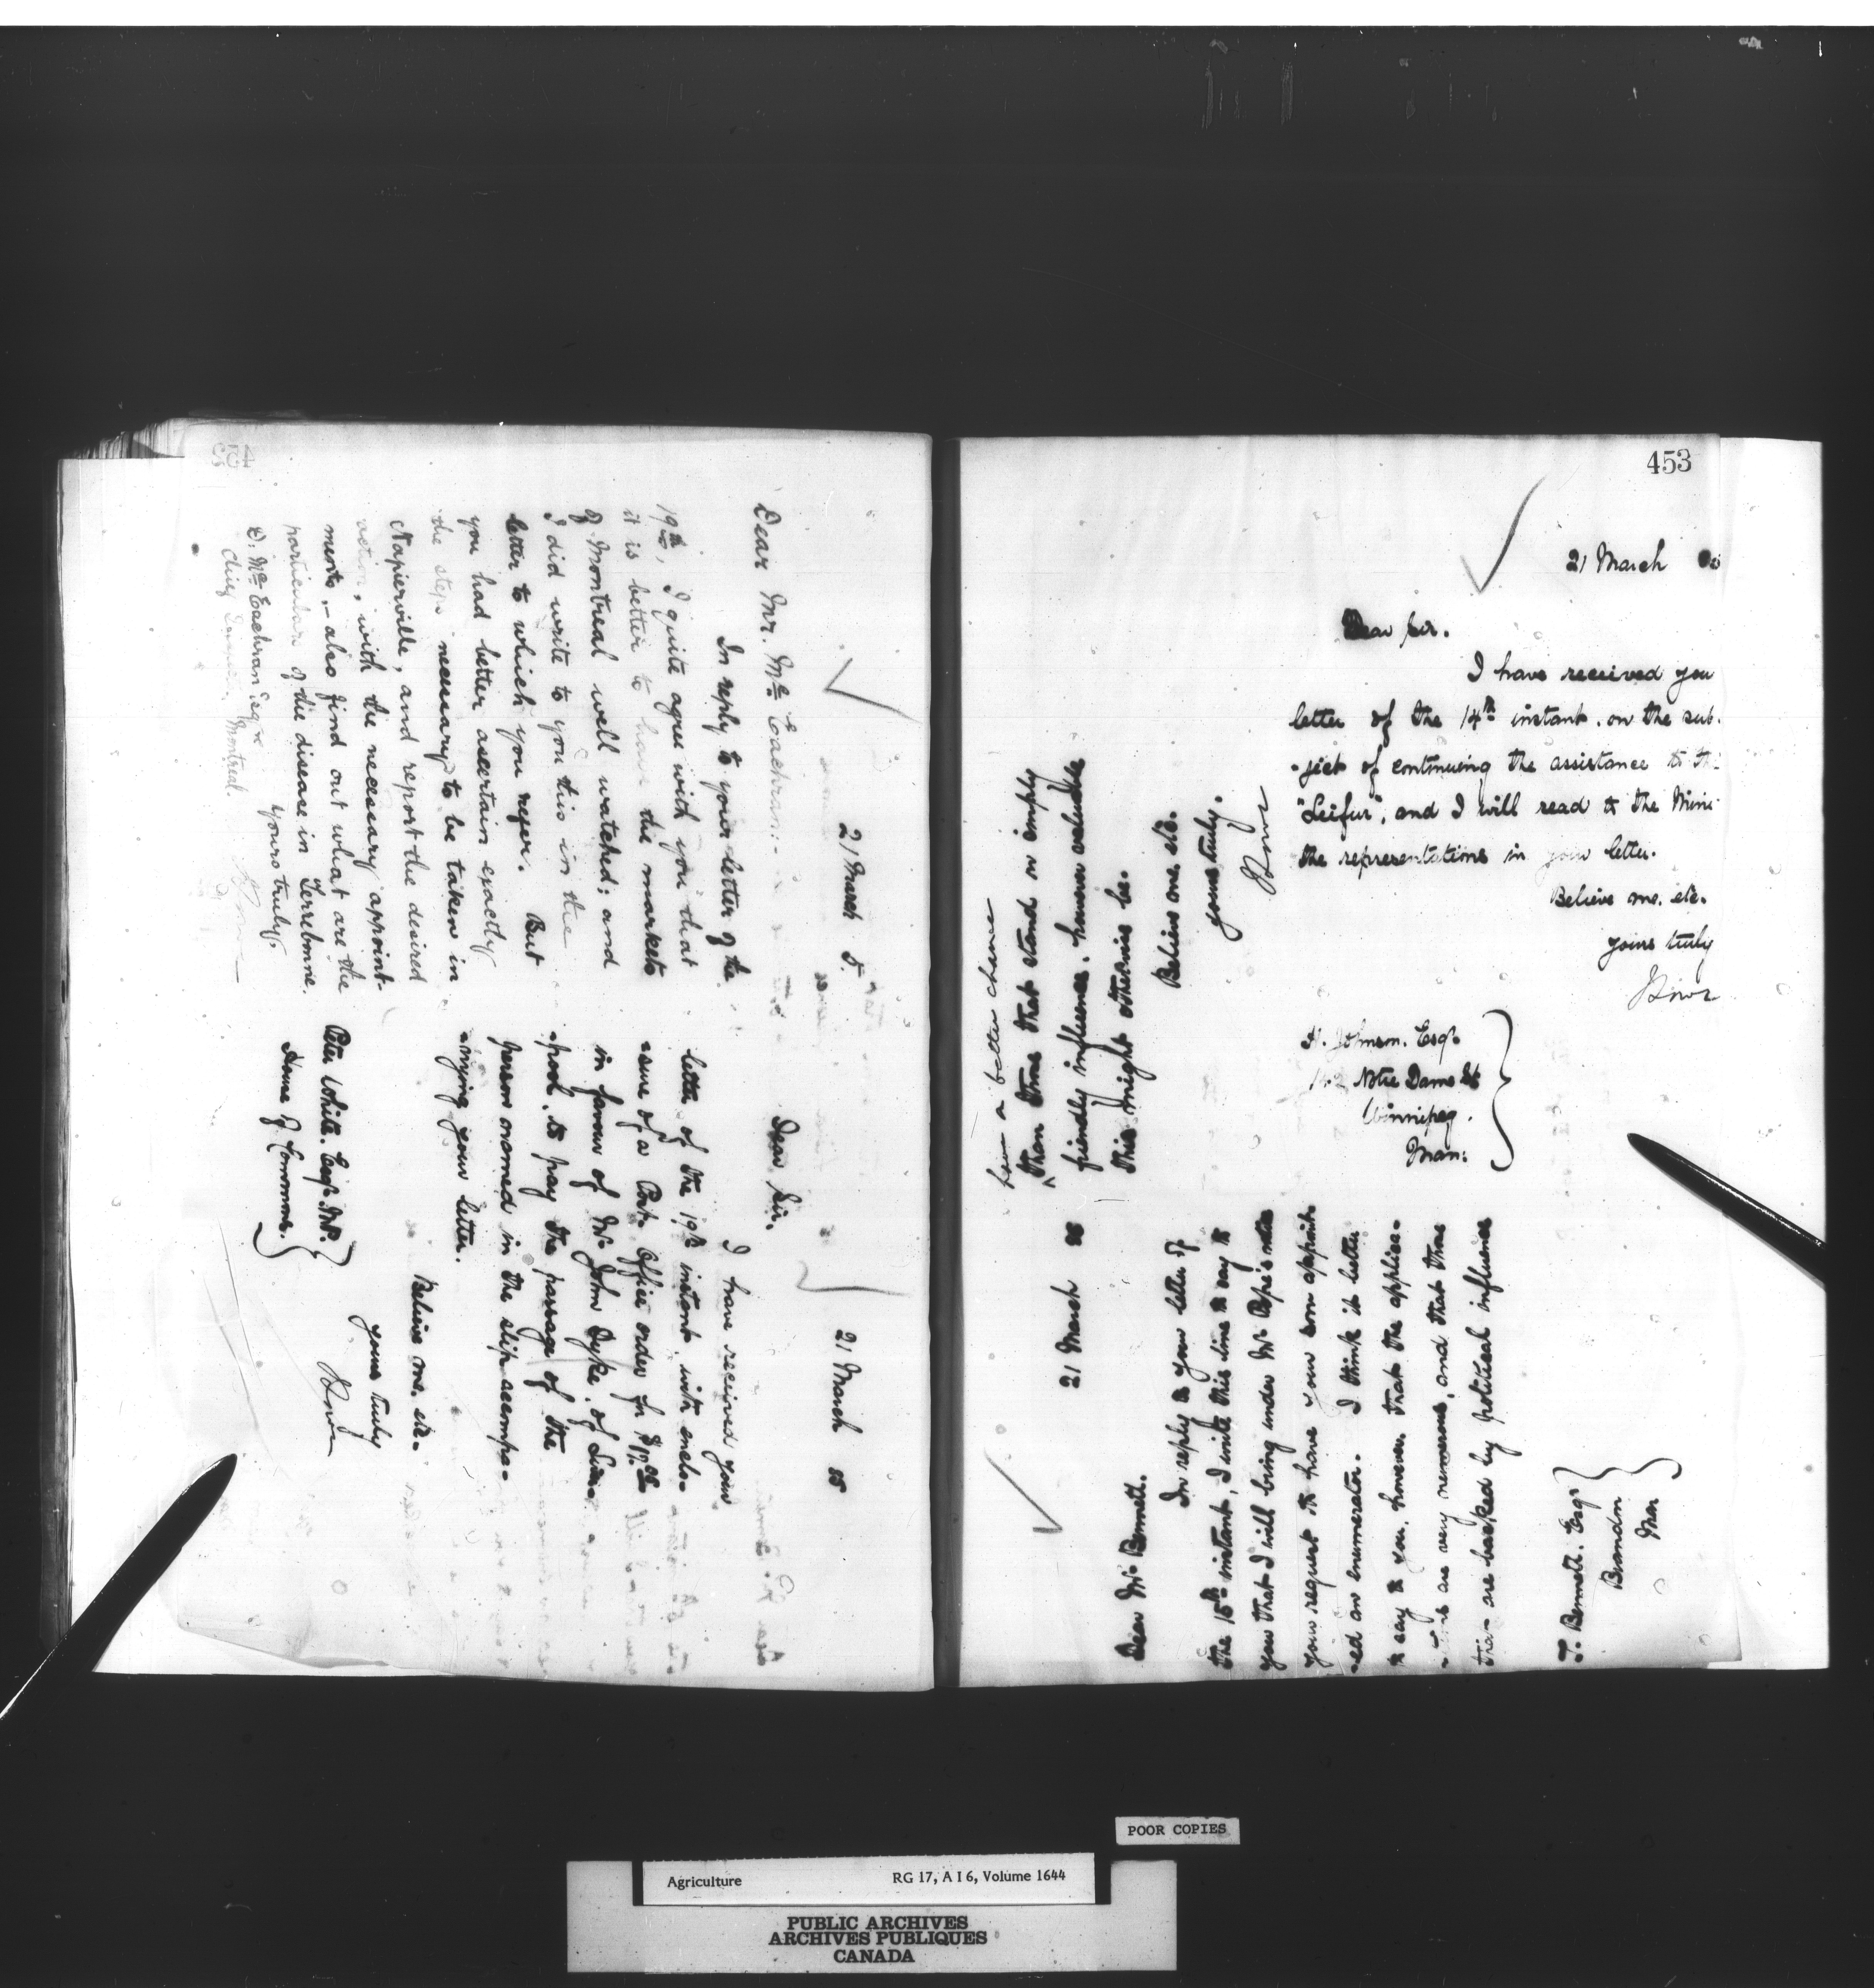 452
21 March 5.
Dear Mr. Mc Eachran.
In reply to your letter of the
19th, I quite agree with you that
it is better to have the markets
of Montreal well watched; and
I did write to you this in the
letter to which you refer. But
you had better ascertain exactly
the steps necessary to be taken in
Napierville, and report the desired
action, with the necessary appoint-
ments, - also find out what are the
particulars of the disease in Terrebonne.
yours truly,
D. Mc Eachran Esqre
Montreal.
21 March 85
Dear Sir.
I have received your
letter of the 19th instant with enclo-
-sure of a Post Office order for $17.00
in favour of Mr John Dyke, of Liver-
-pool, to pay the passage of the
person named in the slip accompa-
-nying your letter.
Believe me. etc.
yours truly
JLowe
Peter White. Esq. M.P.
House of Commons.
453
21 March 85
Dear Sir.
I have received you
letter of the 14th instant. on the sub.
-ject of continuing the assistance to the
"Leifur", and I will read to the Mini
the representations in your letter.
Believe me. etc.
yours truly
JLowe
A. Johnson. Esq.
Notre Dame St
Winnipeg.
Man:
21 March 85
Dear Mr Bennett.
In reply to your letter of
the 15th instant, I write this line to say to
you that I will bring under Mr Pope's notice
your request to have your son appoint-
-ed an enumerator. I think it better
to say to you, however, that the applica-
-tions are very numerous, and that those
that are backed by political influence
have a better chance
than those that stand on simply
friendly influence, however valuable
this might otherwise be.
Believe me. etc.
yours truly.
JLowe
T. Bennett. Esq
Brandon
Man
POOR COPIES
Agriculture RG 17, A I 6, Volume 1644
PUBLIC ARCHIVES
ARCHIVES PUBLIQUES
CANADA